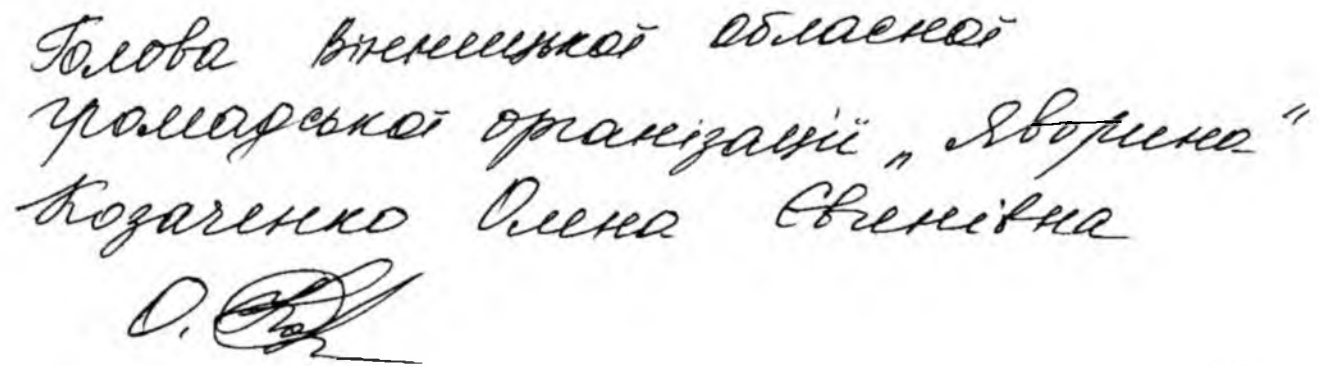 Голова Вінницької обласної
громадської організації „Яворина“
Козаченко Олена Євгенівна
О.